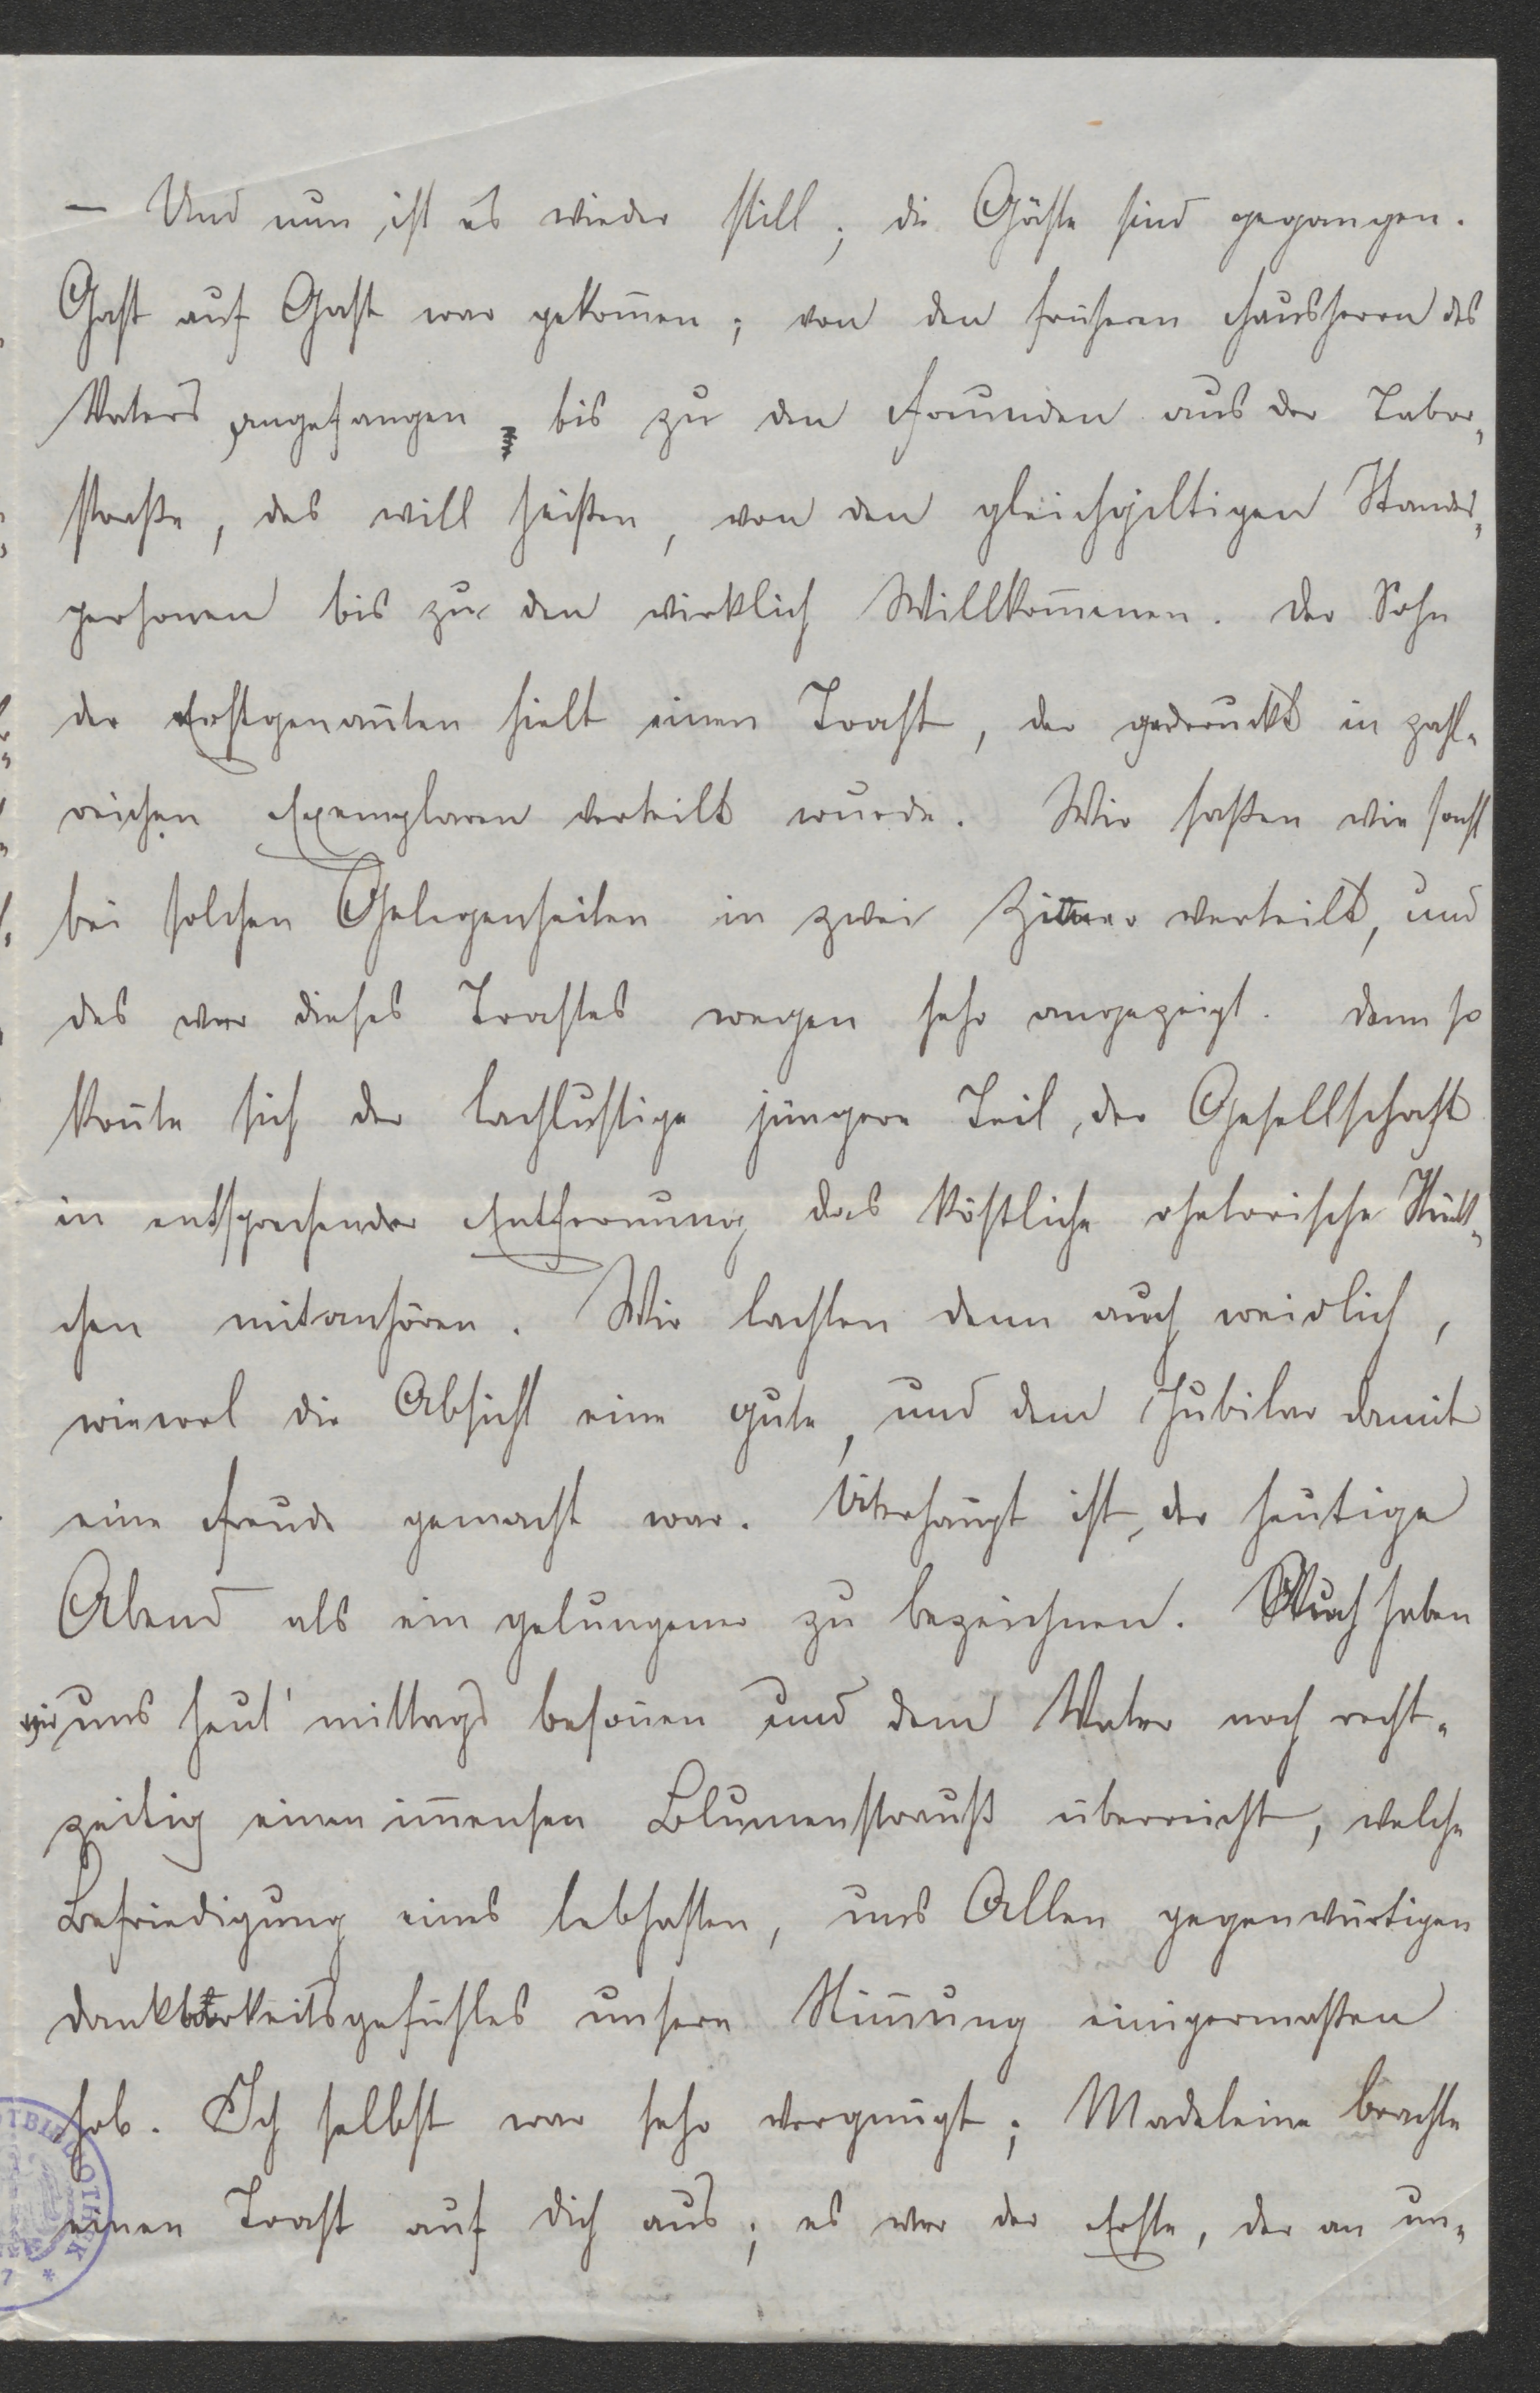 — Und nun ist es wieder still; die Gäste sind gegangen.
Gast auf Gast war gekom̄en; von den früheren Hausherrn des
Vaters angefangen, bis zu den Freunden aus der Tabor-
straße, das will heißen, von den gleichgiltigen Standes-
personen bis zu den wirklich Willkom̄enen. Der Sohn
der Erstgenan̄ten hielt einen Toast, der gedruckt in zahl-
reichen Exemplaren verteilt wurde. Wir saßen wie sonst
bei solchen Gelegenheiten in zwei Zim̄er verteilt, und
das war dieses Toastes wegen sehr angezeigt. Denn so
kon̄te sich der lachlustige jüngere Teil der Gesellschaft
in entsprechender Entfernung das köstliche rhetorische Stück-
chen mitanhören. Wir lachten denn auch weidlich,
wiewol die Absicht eine gute, und dem Jubilar damit
eine Freude gemacht war. Überhaupt ist der heutige
Abend als ein gelungener zu bezeichnen. Auch haben
wir uns heut' mittags beson̄en und dem Vater noch recht-
zeitig einen im̄ensen Blumenstrauß überreicht, welche
Befriedigung eines lebhaften, uns Allen gegenwärtigen
Dankbarkeitsgefühles unsere Stim̄ung einigermaßen
hob. Ich selbst war sehr vergnügt; Madeleine brachte
einen Toast auf Dich aus; es war der Erste, der an un-